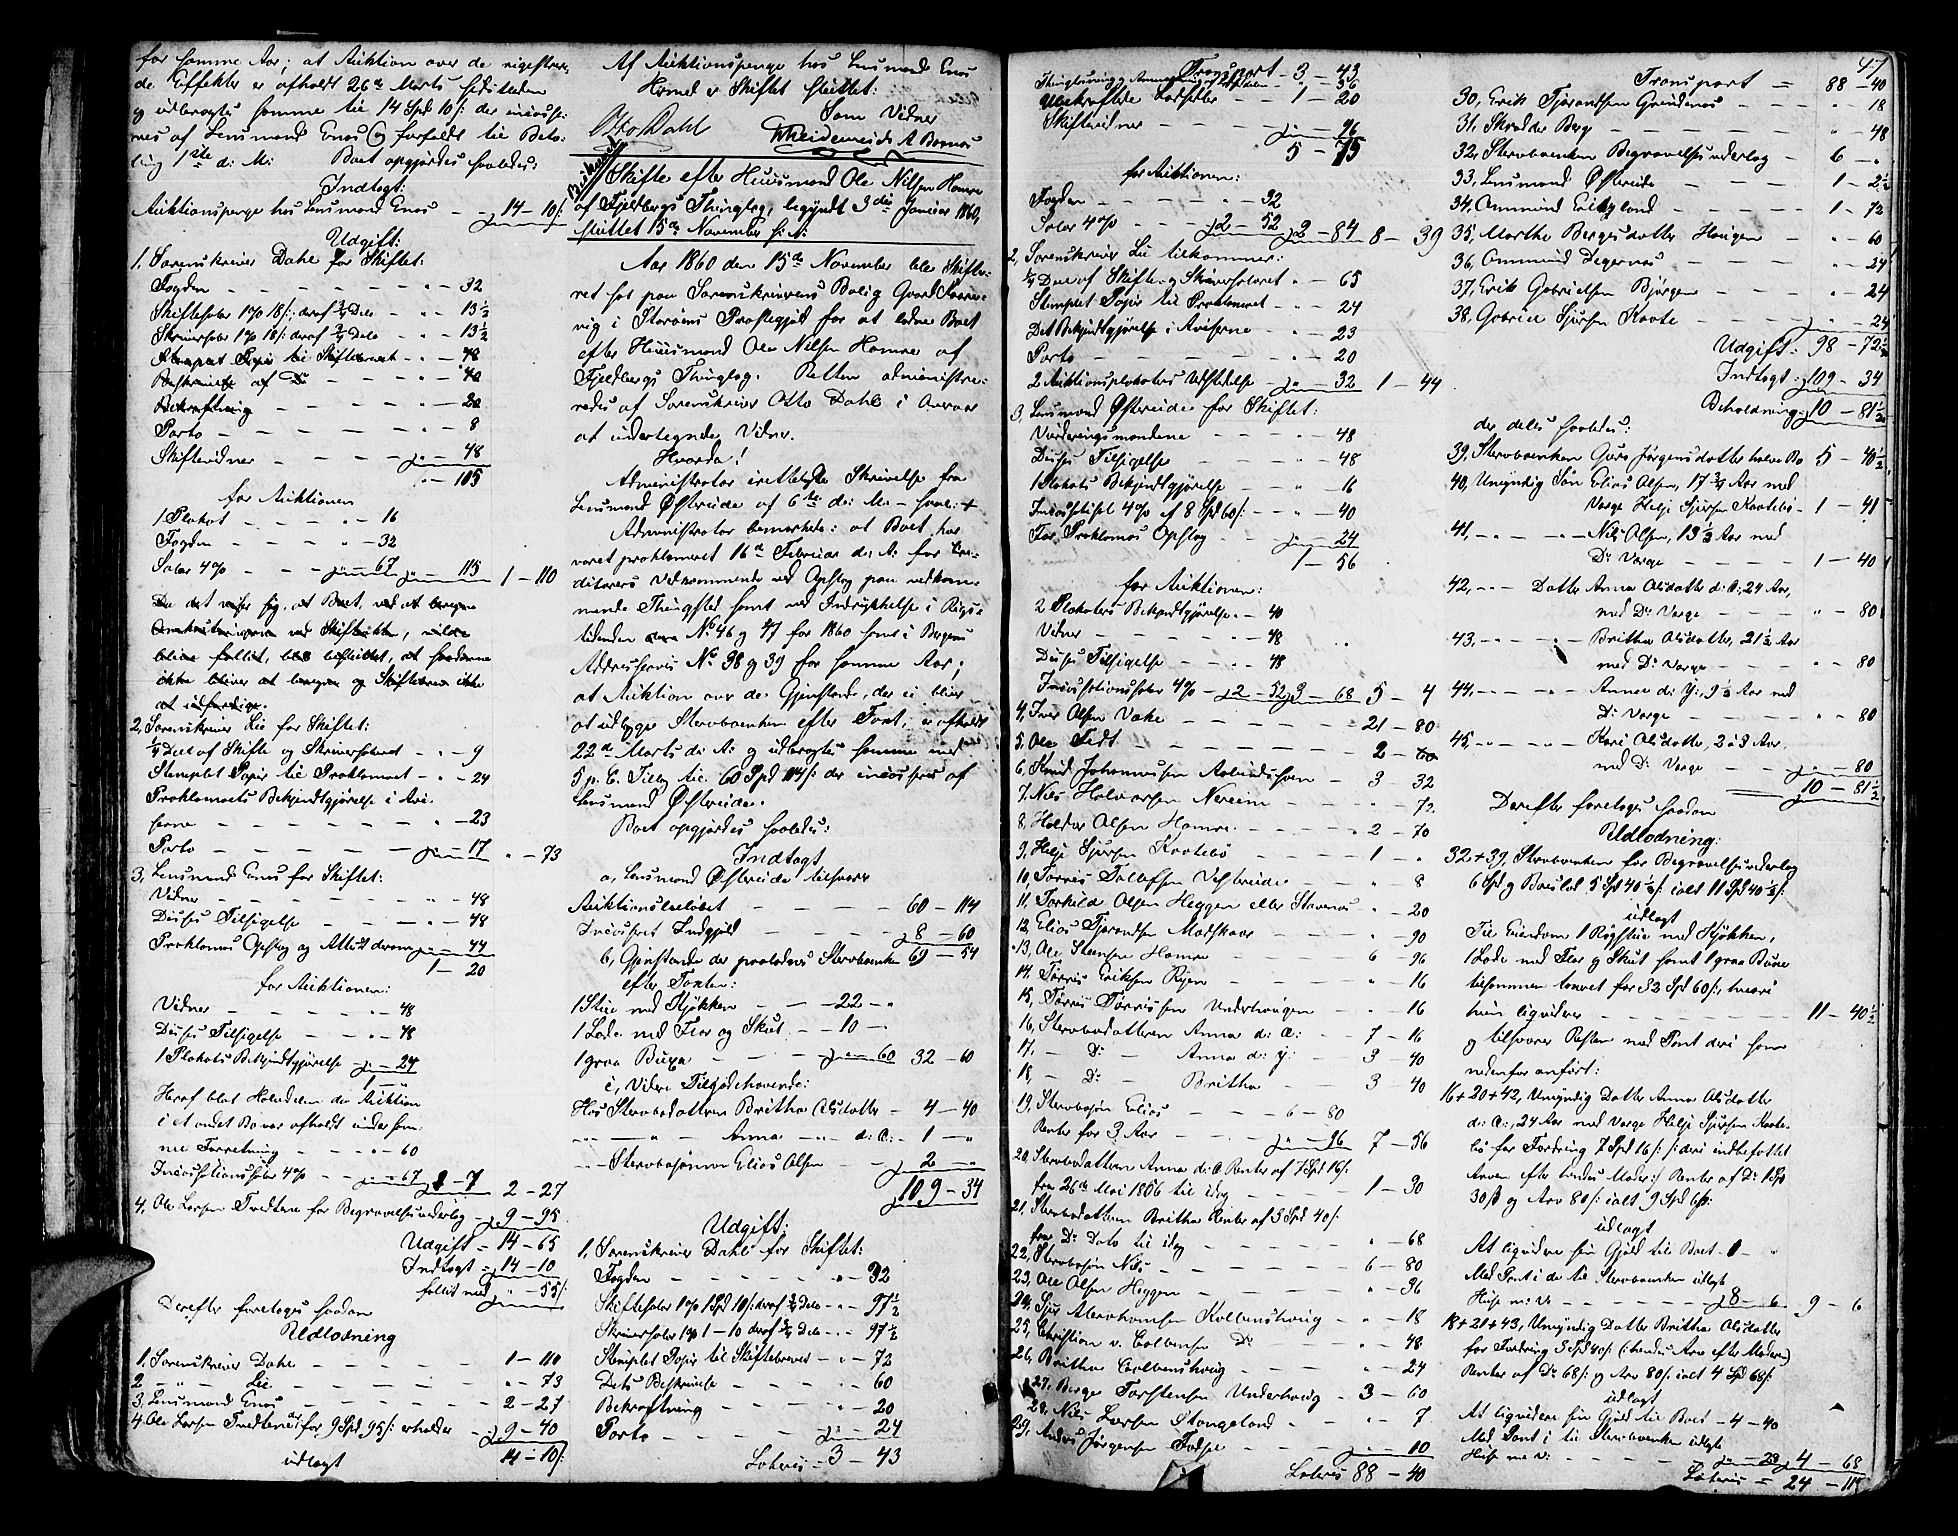 for samme Aar; at Auktion over de registrere-
de Effekter er afholdt 26de Marts sidstleden
og udbragtes samme til 14 Spd 10 s: der incasse-
res af Lensmand Enes og forfaldt til Beta-
ling 1ste d: M: Boet opgjordes saaledes:
Indtægt:
Auktionspenge hos Lensmand Enes - 14 - 10 s:
Udgift:
1. Sorenskriver Dahl for Skiftet:
Fogden - - - - 32
Skiftesalær 1% 18 s: deraf 3/4 Dele - 13 1/2
Skriversalær 1% 18 s: deraf 3/4 Dele - 13 1/2
Stemplet Papir til Skiftebrevet - 48
Beskrivelse af Do - - - 40
Bekræftning - - - 20
Porto - - - 8
Skiftevidner - - - 48
- 105
for Auktionen
1 Plakat - - - 16
Fogden - - - 32
Salær 4% - - - 67 - 115 1 - 110
Da det viser sig, at Boet, ved at beregne
Omkostningerne ved Skiftebrevet, vilde
blive fallit, blev besluttet, at saadanne
ikke bliver at beregne og Skiftebrev ikke
at udfærdige.
2, Sorenskriver Lie for Skiftet:
1/4 Deel af Skifte og Skriversalæret - 9
Stemplet Papir til Proklamaet - 24
Proklamaets Bekjendtgjørelse i Avi-
serne - - - 23
Porto - - - 17 - 73
3, Lensmand Enes for Skiftet:
Vidner - - - 48
Disses Tilsigelse - - 48
Proklamas Opslag og Attest derom - 44
1 - 20
for Auktionen:
Vidner - - - 48
Disses Tilsigelse - - - 48
1 Plakats Bekjendtgjørelse - 24
1 - "
Heraf blot Halvdelen da Auktion
i et andet Bo var afholdt under sam-
me Forretning - - - 60
Incassationssalær 4% - - 67 1 - 7 2 - 27
4, Ole Larsen Tvedtene for Begravelsesunderlag - 9 - 95
Udgift = 14 - 65
Indtægt = 14 - 10
fallit med - 55 s:
Derefter foretoges saadan
Udlodning
1. Sorenskriver Dahl - - - 1 - 110
2 - " - Lie - - - 73
3, Lensmand Enes - - - 2 - 27
4. Ole Larsen Tvedtenæs for 9 Spd 95 s: erholder - 9 - 40
udlagt 14 - 10 s:
Af Auktionspenge hos Lensmand Enes
Hermed er Skiftet sluttet:
Som Vidner
Otto Dahl
Skifte efter Huusmand Ole Nilsen Hamre
af Fjeldbergs Thinglag, begyndt 3die Januar 1860,
sluttet 15de November s: A:
Aar 1860 den 15de November blev Skifte-
ret sat paa Sorenskriverens Bolig Gaard
i Storøens Præstegjeld for at slutte Boet
efter Huusmand Ole Nilsen Hamre af
Fjeldbergs Thinglag. Retten administre-
redes af Sorenskriver Otto Dahl i Overvær
af undertegnede Vidner.
Hvorda!
Administrator irettelagde Skrivelse fra
Lensmand Østreide af 6te d: M: - saal: +
Administrator bemærkede: at Boet har
været proklameret 16de Februar d: A: for Cre-
ditorers Vedkommende ved Opslag paa vedkom-
mende Thingsted samt ved Indrykkelse i Rigs-
tidenden No 46 og 47 for 1860 samt i Bergens
Adresseavis No 38 og 39 for samme Aar;
at Auktion over de Gjenstande, der ei blive
at udlægge Stervboenken efter Taxt, er afholdt
22de Marts d: A: og udbragtes samme med
5 p. C. Tillæg til 60 Spd 114 s: der incasseres af
Lensmand Østreide.
Boet opgjordes saaledes:
Indtægt
a, Lensmand Østreide tilsvarer
Auktionsbeløbet - - - 60 - 114
Incasseret Indgjæld - - - 8 - 60
69 - 54
b, Gjenstande der paalodnes Stervboenken
efter Taxten:
1 Stue med Kjøkken - - - 22 - "
1 Lade med Flor og Skut - - 10 - "
1 graa Buxe - - - 60 32 - 60
c, Videre Tilgodehavende:
Hos Stervbodatteren Britha Olsdatter - 4 - 40
" - " - Anna - " - d: Æ: - 1 - "
" - Stervbosønnen Elias Olsen - 2 - "
109 - 34
Udgift:
1, Sorenskriver Dahl for Skiftet:
Fogden - - - 32
Skiftesalær 1% 1 Spd 10 s: deraf 3/4 Dele - 97 1/2
Skriversalær 1% 1 - 10 deraf 3/4 Dele - 97 1/2
Stemplet Papir til Skiftebrevet - 72
Dets Beskrivelse - - - 60
Bekræftning - - - 20
Porto - - - 24
Lateris - 3 - 43
Transport - 3 - 43
36
Ubekræftede Lodsedler - - 1 - 20
Skiftevidner - - - 96
5 - 75
for Auktionen:
Fogden - - - 32
Salær 4% - - 2 - 52 2 - 84 8 - 39
2, Sorenskriver Lie tilkommer:
1/4 Deel af Skifte og Skriversalæret - 65
Stemplet Papir til Proklamaet - 24
Det Bekjendtgjørelse i Aviserne - 23
Porto - - - 20
2 Auktionsplakaters Udstedelse - 32 1 - 44
3, Lensmand Østreide for Skiftet:
Vurderingsmændene - - - 48
Disses Tilsigelse - - - 48
1 Plakats Bekjendtgjørelse - - 16
Incassation 4% af 8 Spd 60 s: - - 40
For Proklamas Opslag - - 24
1 - 56
for Auktionen:
2 Plakaters Bekjendtgjørelse - 40
Vidner - - - 48
Disses Tilsigelse - - 48
Incassationssalær 4% - 2 - 52 3 - 68 5 - 4
4, Iver Olsen Vake - - - 21 - 80
5, Ole Tedt - - - 2 - 60
6, Knud Johannessen - 3 32
7. Nils Halvorsen Nereim - - - 72
8, Haldor Olsen Hamre - - - 2 - 70
9, Helje Sjursen Kaatebø - - - 1 - "
10, Torris Tollefsen Vestreide - - 8
11, Torkild Olsen Heggen eller Stavenes - 20
12, Elias Tjerandsen Matskaar - - 90
13, Ole Steensen Hamre - - 6 96
14, Torris Eriksen Ryen - - - 16
15, Torris Torrissen Underhougen - - 16
16, Stervbodatteren Anna d: Æ: - 7 - 16
17, - Do - Anna d: Y: - 3 - 40
18, - Do - Britha - 3 40
19, Stervbosøn Elias - - - 6 - 80
Renter for 3 Aar - - - 96 7 - 56
20, Stervbodatteren Anna d: Æ. Renter af 7 Spd 16 s:
fra 26de Mai 1856 til idag - - - 1 - 30
21, Stervbodatteren Britha Renter af 3 Spd 40 s:
fra Do Dato til idag - - - 68
22, Stervbosøn Nils - - - 6 - 80
23, Ole Olsen Heggen - - - 36
24, Sjur Abrahamsen Kolbenshavig - - 18
25, Christian v. Colbensen Do - 48
26, Britha Colbenshavig - - - 24
27, Berge Torstensen Underhaug - 3 - 60
28, Nils Larsen Stangeland - - - 7
29, Anders Jørgensen Tofse - - - 10
Lateris 88 - 40
47
Transport = 88 - 40
30, Erik Tjerandsen Grindenæs - - - 18
31, Skrædder Berg - - - 48
32, Stervboenken Begravelsesunderlag - 6 - "
33, Lensmand Østreide - - 1 - 2 1/2
34, Ommund Eikeland - - - 1 - 72
35, Marthe Bergesdatter Haugen - - 60
36, Ommund Degernæs - - - 24
37, Erik Gabrielsen Bjørgen - - - 24
38, Gabriel Sjursen Kaate - - - 24
Udgift: 98 - 72 1/2
Indtægt: 109 - 34
Beholdning: 10 - 81 1/2
der deles saaledes:
39, Stervboenken Guro Jørgensdatter halve Bo 5 - 40 1/2
40, Umyndig Søn Elias Olsen, 17 3/4 Aar med
Værge Helje Sjursen Kaatebø - 1 - 41
41, - " - " - Nils Olsen, 13 1/2 Aar med
Do Værge - - - 1 - 40
42, - " - Datter Anna Olsdatter d: Æ; 24 Aar,
med Do Værge - - - 80
43, - " - " - Britha Olsdatter, 21 1/2 Aar
med Do Værge - - - 80
44, - " - " - Anna d: Y:, 9 1/2 Aar med
Do Værge - - - 80
45, - " - " - Kari Olsdatter, 2 à 3 Aar,
med Do Værge - - - 80
10 - 81 1/2
Derefter foretoges saadan
Udlodning:
32+39, Stervboenken for Begravelsesunderlag
6 Spd og Boeslod 5 Spd 40 1/2 s: ialt 11 Spd 40 1/2 s:
udlagt
Til Eiendom 1 Røgstue med Kjøkken,
1 Lade med Flor og Skut samt 1 graa Buxe
tilsammen taxeret for 32 Spd 60 s:, hvori
hun ligviderer - - - 11 - 40 1/2
og tilsvarer Resten med Pant deri som
nedenfor anført:
16+20+42, Umyndig Datter Anna Olsdatter
d: Æ:, 24 Aar med Værge Helje Sjursen Kaate-
bø for Fordring 7 Spd 16 s: /: deri indbefattet
Arven efter hendes Moder :/ Renter af Do 1 Spd
30 s og Arv 80 s: ialt 9 Spd 6 s:
udlagt
At ligvidere sin Gjæld til Boet - 1 - "
Med Pant i de til Stervboenken udlagte
Huse m: v: - - - 8 - 6 9 - 6
18+21+43, Umyndig Datter Britha Olsdatter
for Fordring 3 Spd 40 s: (: hendes Arv efter Moderen)
Renter af Do 68 s: og Arv 80 s: ialt 4 Spd 68 s:
udlagt
At ligvidere sin Gjæld til Boet - 4 - 40
Med Pant i til Stervboenken udlagte
Huse m: v: - - - 28 4 - 68
Lateris = 24 - 115